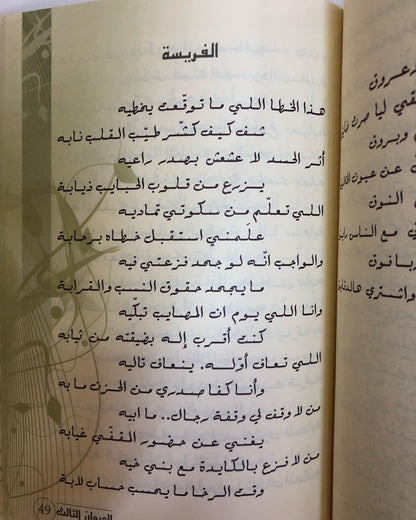 الفريسة
هذا الخطا اللي ما توقّعت يخطيه
شف كيف كشّر طيّب القلب نابه
أثر الحسد لا عشعش بصدر راعيه
يزرع من قلوب الحبايب ذيابة
اللي تعلّم من سكوتي تماديه
علّمني استقبل خطاه برحابة
والواجب انّه لو جحد فزعتي فيه
ما يجحد حقوق النسب والقرابة
وانا اللي يوم ان المصايب تبكّيه
كنت أقرب إله بهقيته من ثيابه
اللي تعاف أوّله.. ينعاف تاليه
وأنا كفا صدري من الحزن ما به
من لا وقف لي وقفة رجال.. ما ابيه
يغني عن حضور المقفّي غيابه
من لا فزع بالكايدة مع بني خيه
وقت الرخا ما يحسب حساب لابة
الديوان الثالث 49
دعروق
وبروق
عن عيون
النون
مع الناس
بانوق
واشتري